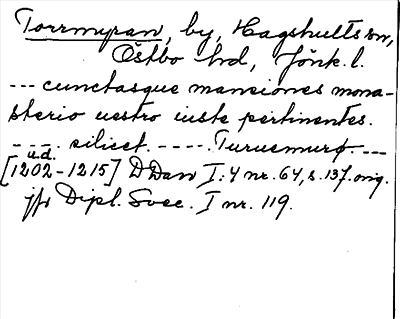 Torrmyran, by, Hagshults sn,
Östbo hd, Jönk. l.
--- cunctasque mansiones mona-
sterio uestro iuste pertinentes.
---- silicet. ----- Turuemurø. ---
u.d.
[1202-1215] DDan I:4 nr. 64, s. 137. orig.
jfr Dipl. Svec. I nr. 119.